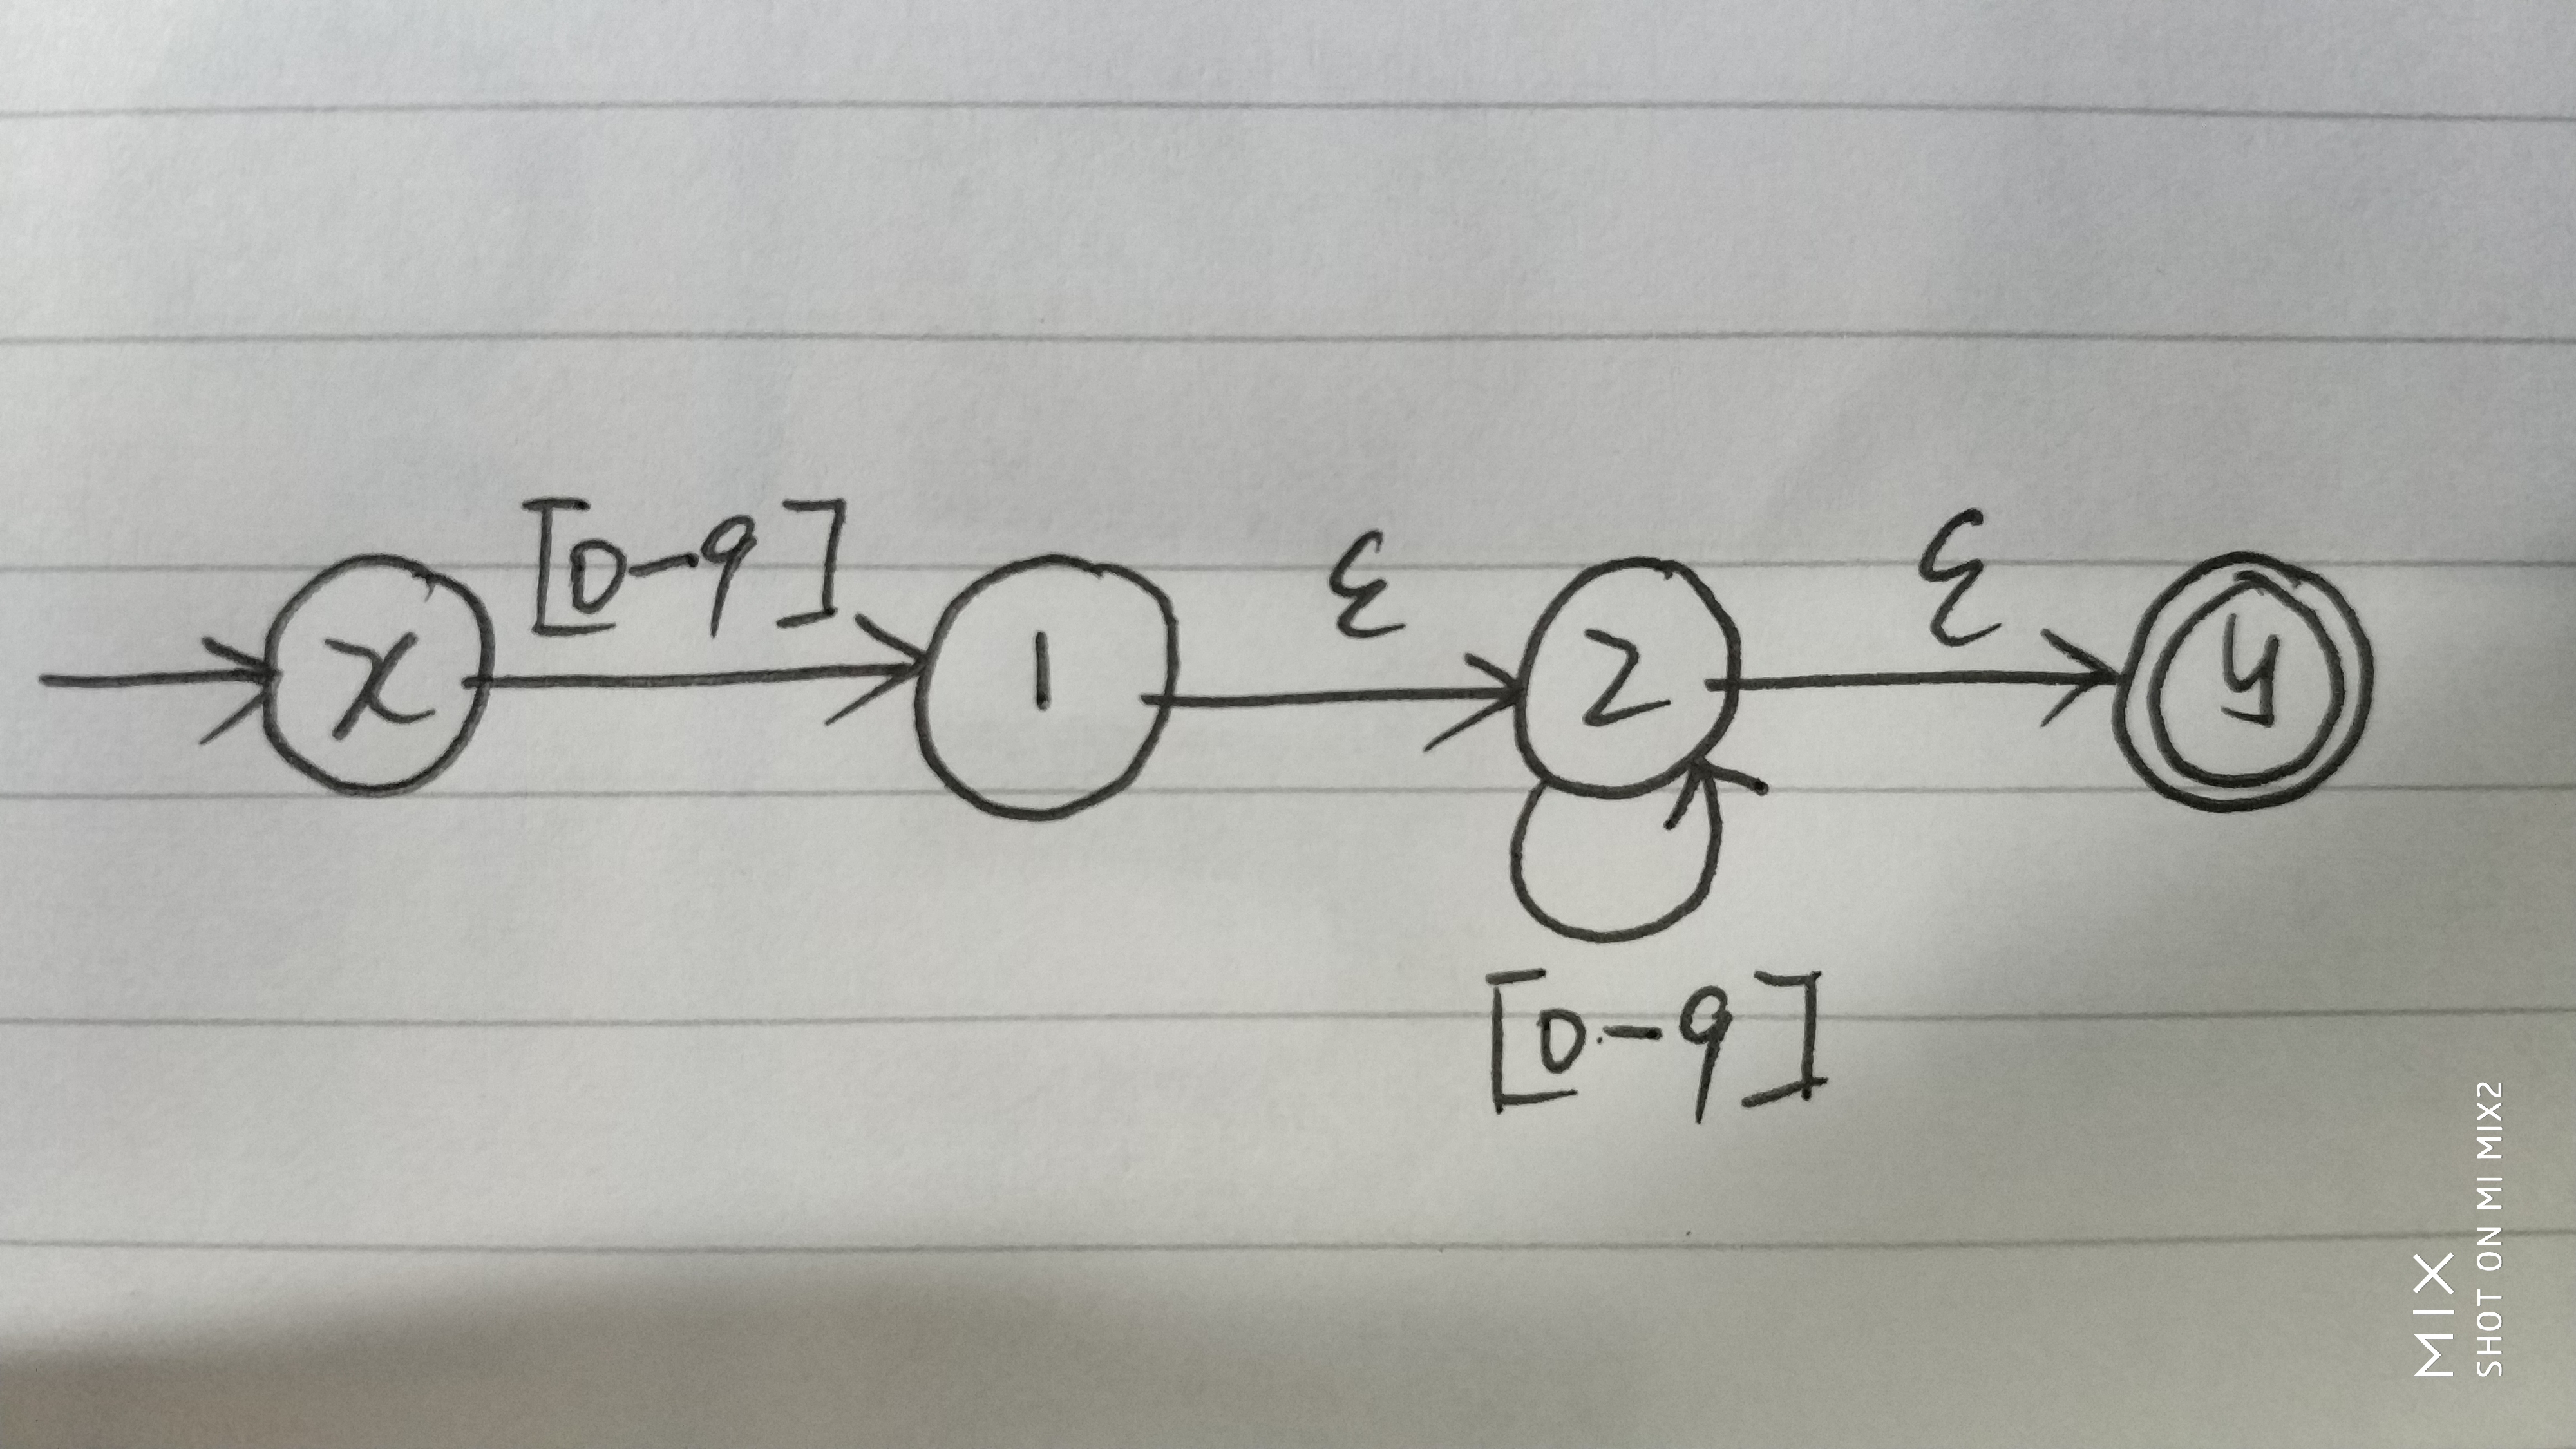 X
[0-9]
1
ε
2
[0-9]
ε
Y
MIX
SHOT ON MI MIX2